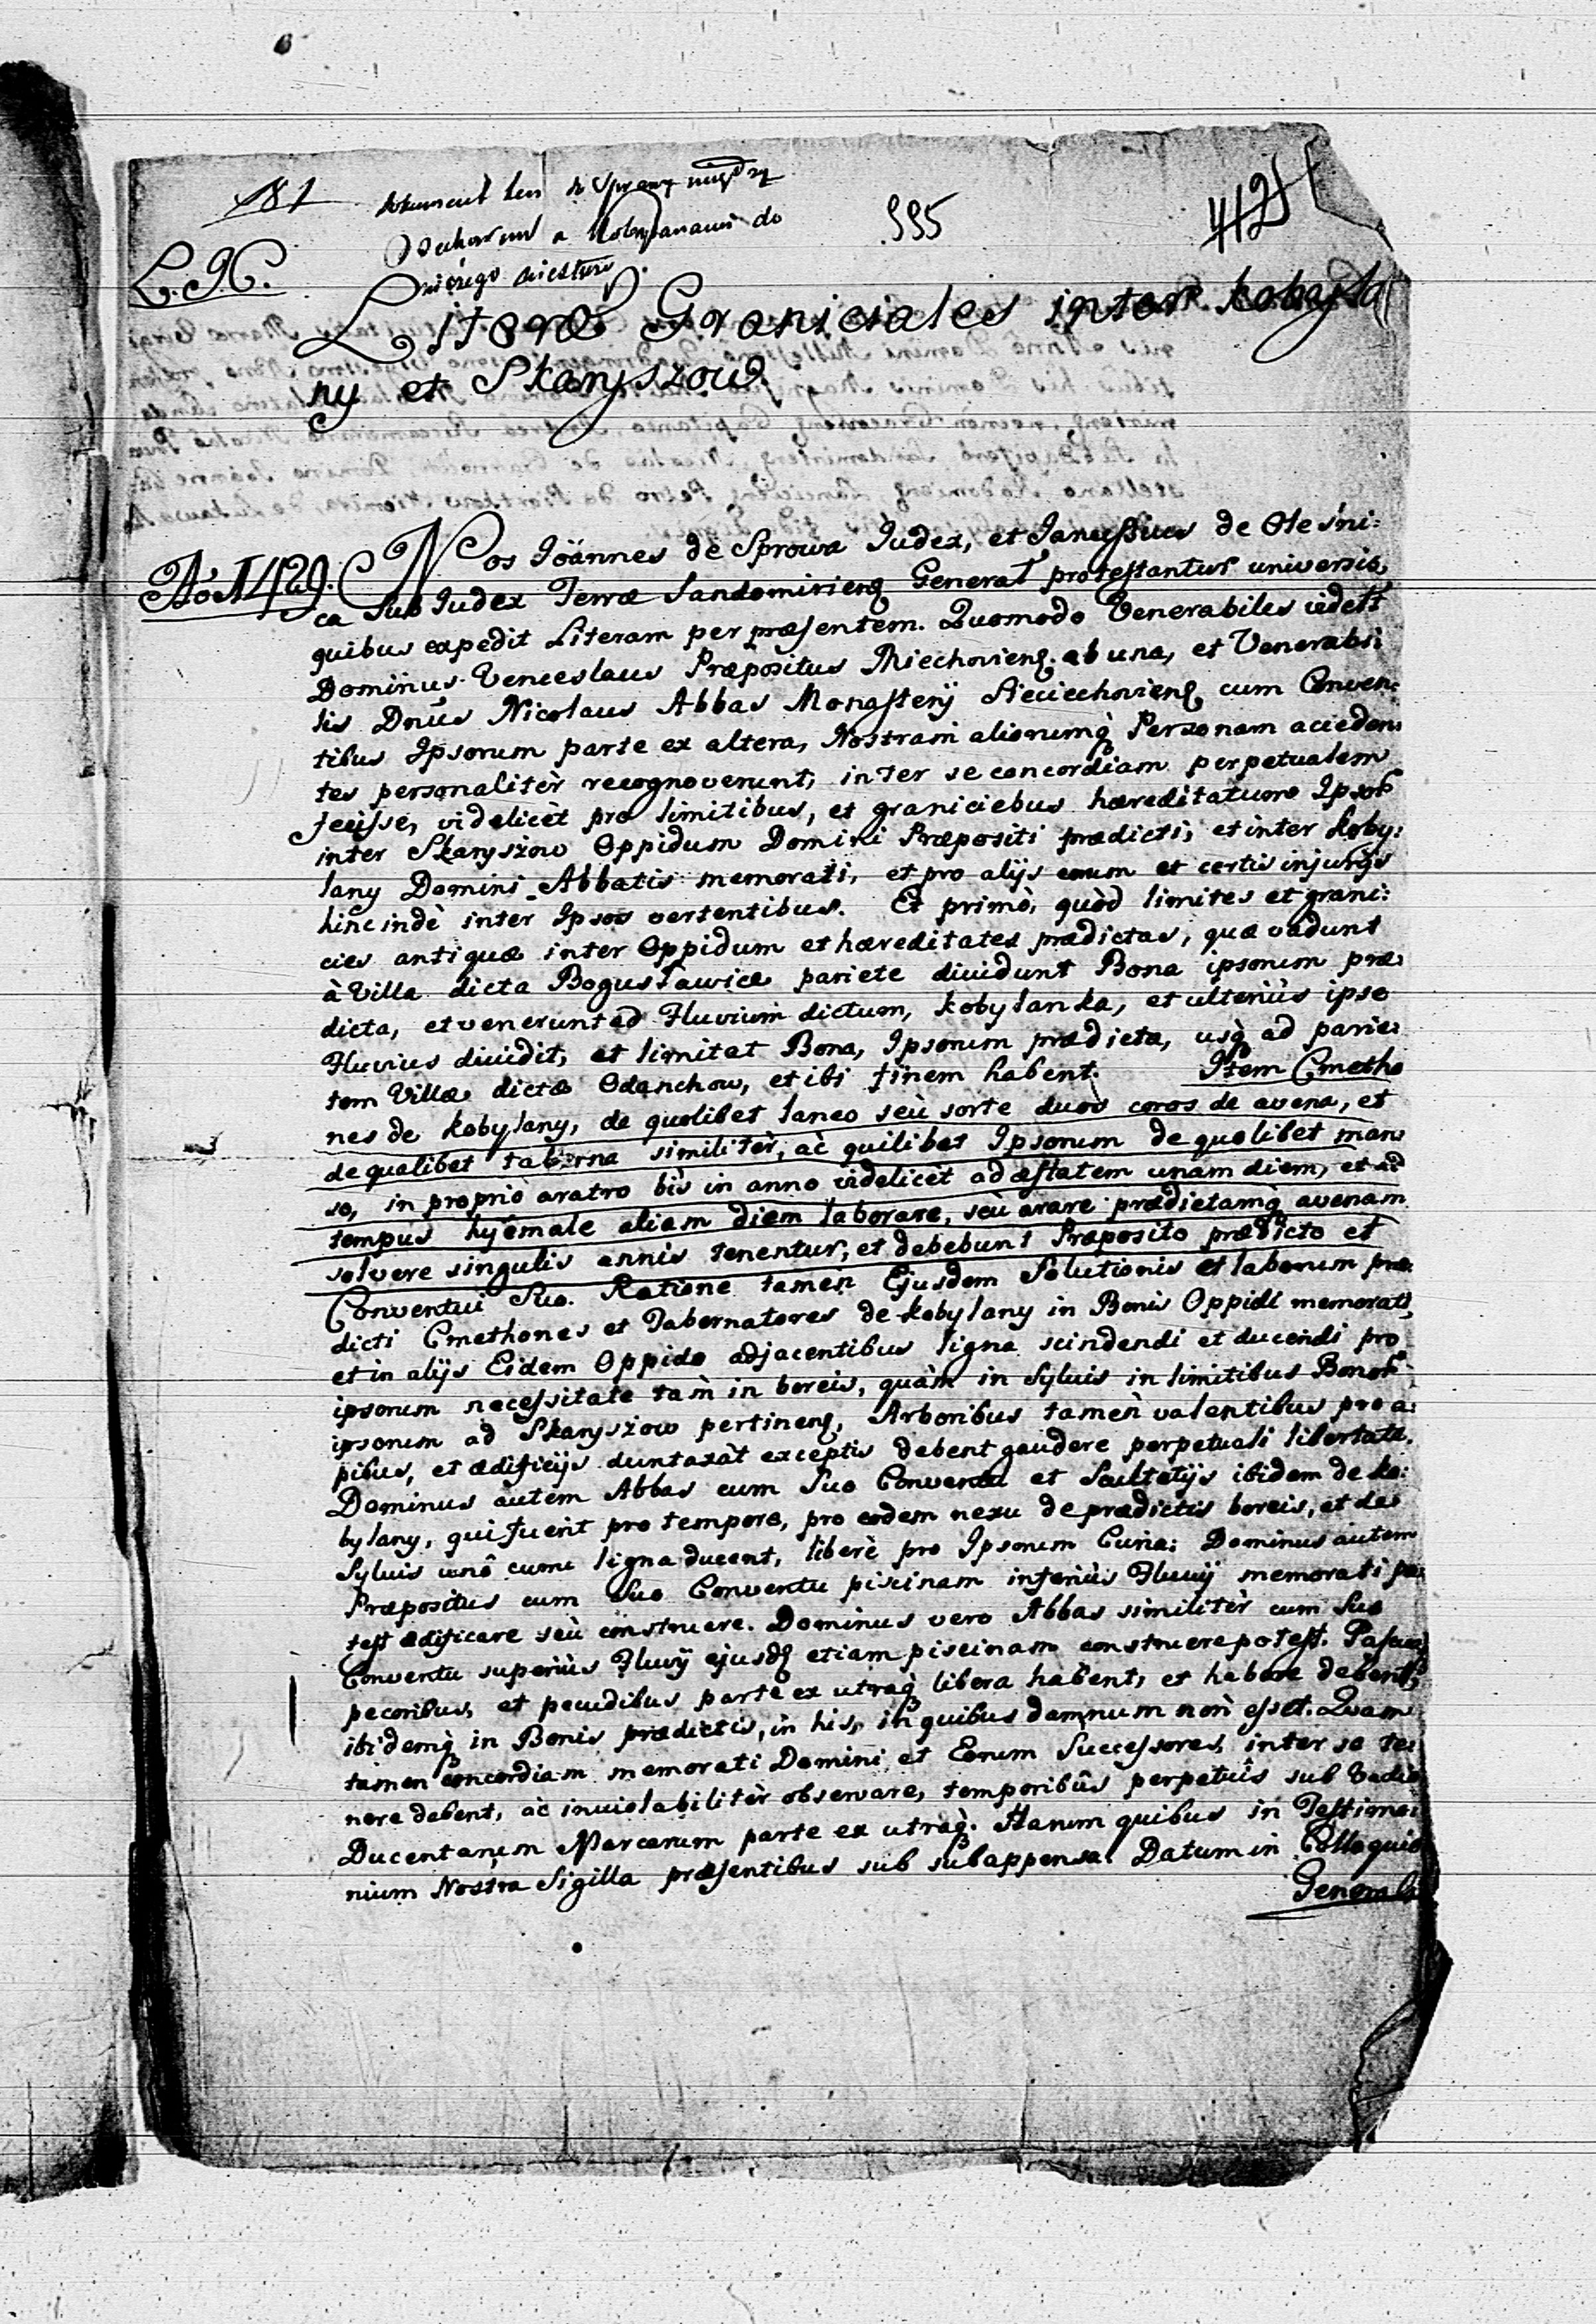 181
dokument ten do Sprawy między
a Kobylanami do
niczego
995
412
L. 9C.
Literæ Graniciales inter Kobyla
ny et Skaryszow.
Ao 1429. Nos Joännes de Sprowa Judex, et Janussius de Oleśni:
ca SubJudex Terræ Sandomirienq Generał protestantur universis,
quibus expedit Literam per præsentem. Quomodo Venerabiles videlt
Dominus Venceslaus Præpositus Miechovienq. ab una, et Venerabi:
lis Dnus Nicolaus Abbas Monasterij Sieciechovienq cum Conven:
tibus Ipsorum parte ex altera, Nostram aliorumq Personam acceden:
tes personalitèr recognoverunt, inter se concordiam perpetualem
fecisse, videlicèt pro limitibus, et graniciebus hæreditatum Ipsor
inter Skaryszow Oppidum Domini Præpositi prædicti, et inter Koby:
lany Domini Abbatis memorati, et pro alijs earum et certis injurijs
hincindè inter Ipsos vertentibus. Et primò, quòd limites et grani:
cies antiquæ inter Oppidum et hæreditates prædictas, quæ vadunt
à Villa dicta Bogusławice pariete dividunt Bona ipsorum præ:
dicta, et venerunt ad Fluvium dictum, Kobylanka, et ulteriùs ipse
Fluvius dividit, et limitat Bona, Ipsorum prædicta, usq ad parie:
tem Villæ dictæ Odanchow, et ibi finem habent. Item Cmetho
nes de Kobylany, de quolibet laneo seù sorte duos coros de avena, et
de qualibet taberna similitèr, àc quilibet Ipsorum de quolibet man:
so, in propriò aratro bis in anno videlicèt ad æstatem unam diem, et ad
tempus hyëmale aliam diem laborare, seù arare prædictamq avenam
solvere singulis annis tenentur, et debebunt Præposito prædicto et
Conventui Suo. Ratione tamen Ejusdem Solutionis et laborum præ:
dicti Cmethones et Tabernatores de Kobylany in Bonis Oppidi memorati,
et in alijs Eidem Oppido adjacentibus ligna scindendi et ducendi pro
ipsorum necessitate tàm in boreis, quàm in Sylvis in limitibus Bonor
ipsorum ad Skaryszow pertinenq, Arboribus tamèn valentibus pro a:
pibus, et ædificijs duntaxàt exceptis debent gaudere perpetuali libertate.
Dominus autem Abbas cum Suo Conventu et Scultetijs ibidem de Ko:
bylany, qui fuerit pro tempore, pro eodem nexu de prædictis boreis, et de
Sylvis unô curru ligna ducent, liberè pro Ipsorum Curia: Dominus autem
Præpositus cum Suo Conventu piscinam inferiùs Fluvij memorati po:
test ædificare seù construere. Dominus vero Abbas similitèr cum Suo
Conventu superiùs Fluvij ejusdq etiam piscinam construere potest. Pascua
pecoribus, et pecudibus parte ex utraq libera habent, et habere debent,
ibidemq in Bonis prædictis, in his, in quibus damnum non esset. Quam
tamen Concordiam memorati Domini et Eorum Successores, inter se te:
nere debent, àc inviolabilitèr observare, temporibûs perpetuîs sub Vadio
Ducentarum Marcarum parte ex utraq. Harum quibus in Testimo:
nium Nostra Sigilla præsentibus sub subappensa. Datum in Colloquio
Generali